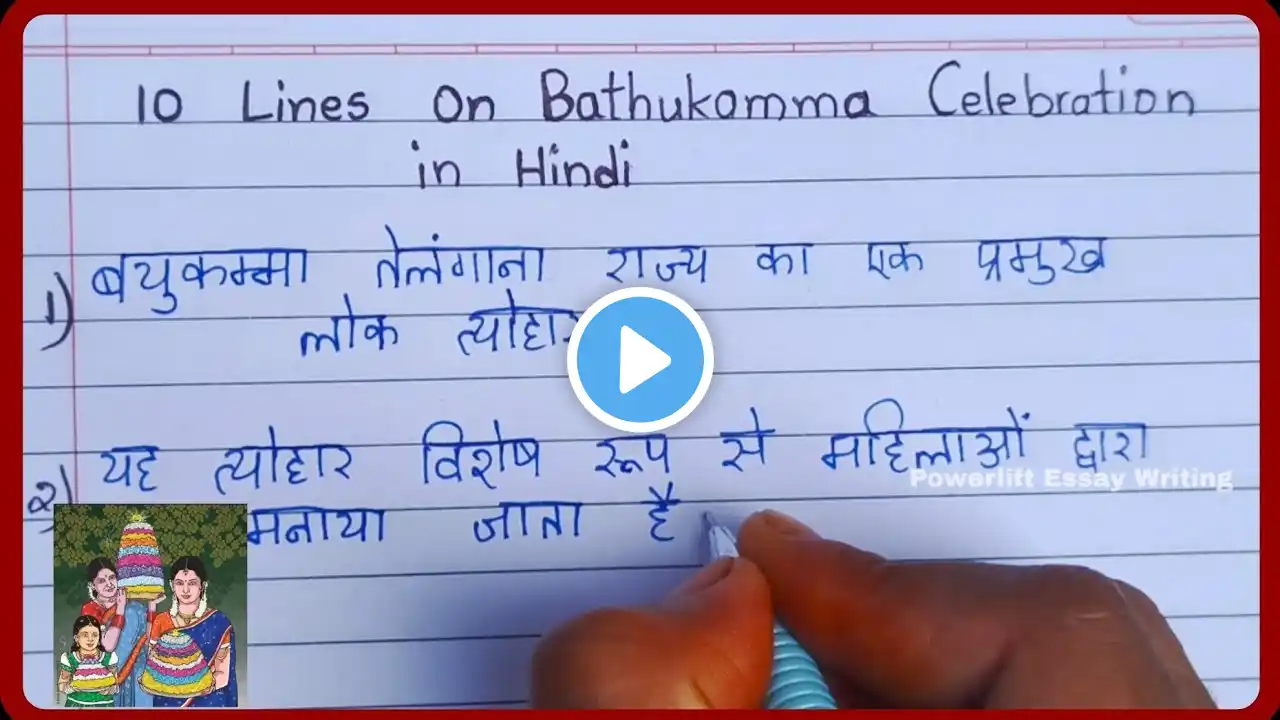 10 Lines on Bathukamma Celebration
in Hindi
1) बथुकम्मा तेलंगाना राज्य का एक प्रमुख
लोक त्योहार
2) यह त्योहार विशेष रूप से महिलाओं द्वारा
मनाया जाता है
Powerlift Essay Writing